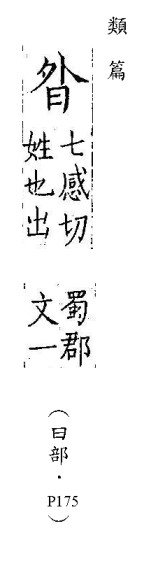 類篇
昝
七感切
姓也出
蜀郡
文一
（曰部．P175）